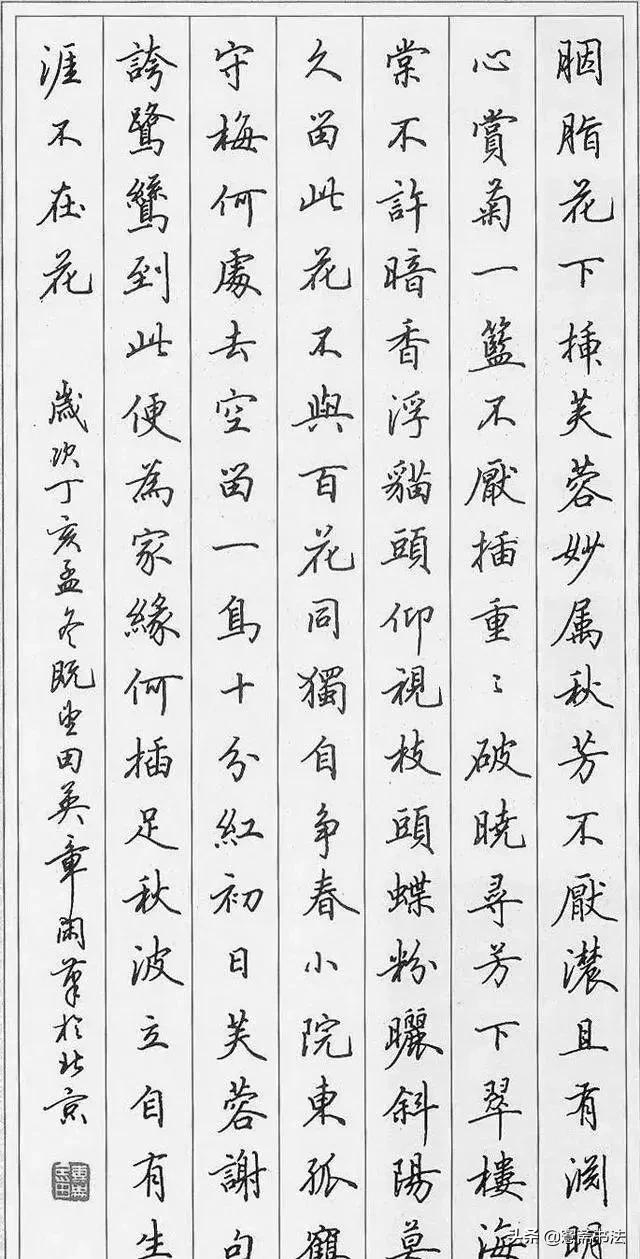 胭脂花下插芙蓉妙属秋芳不厭濃且有渊明
心賞菊一籃不厭插重〻破曉尋芳下翠樓海
棠不許暗香浮貓頭仰視枝頭蝶粉曬斜陽莫
久留此花不與百花同獨自争春小院東孤鶴
守梅何處去空留一鳥十分紅初日芙蓉謝句
誇鷺鷥到此便為家緣何插足秋波立自有生
涯不在花
歲次丁亥孟冬既望田英章闲筆於北京
头条 @斋书法